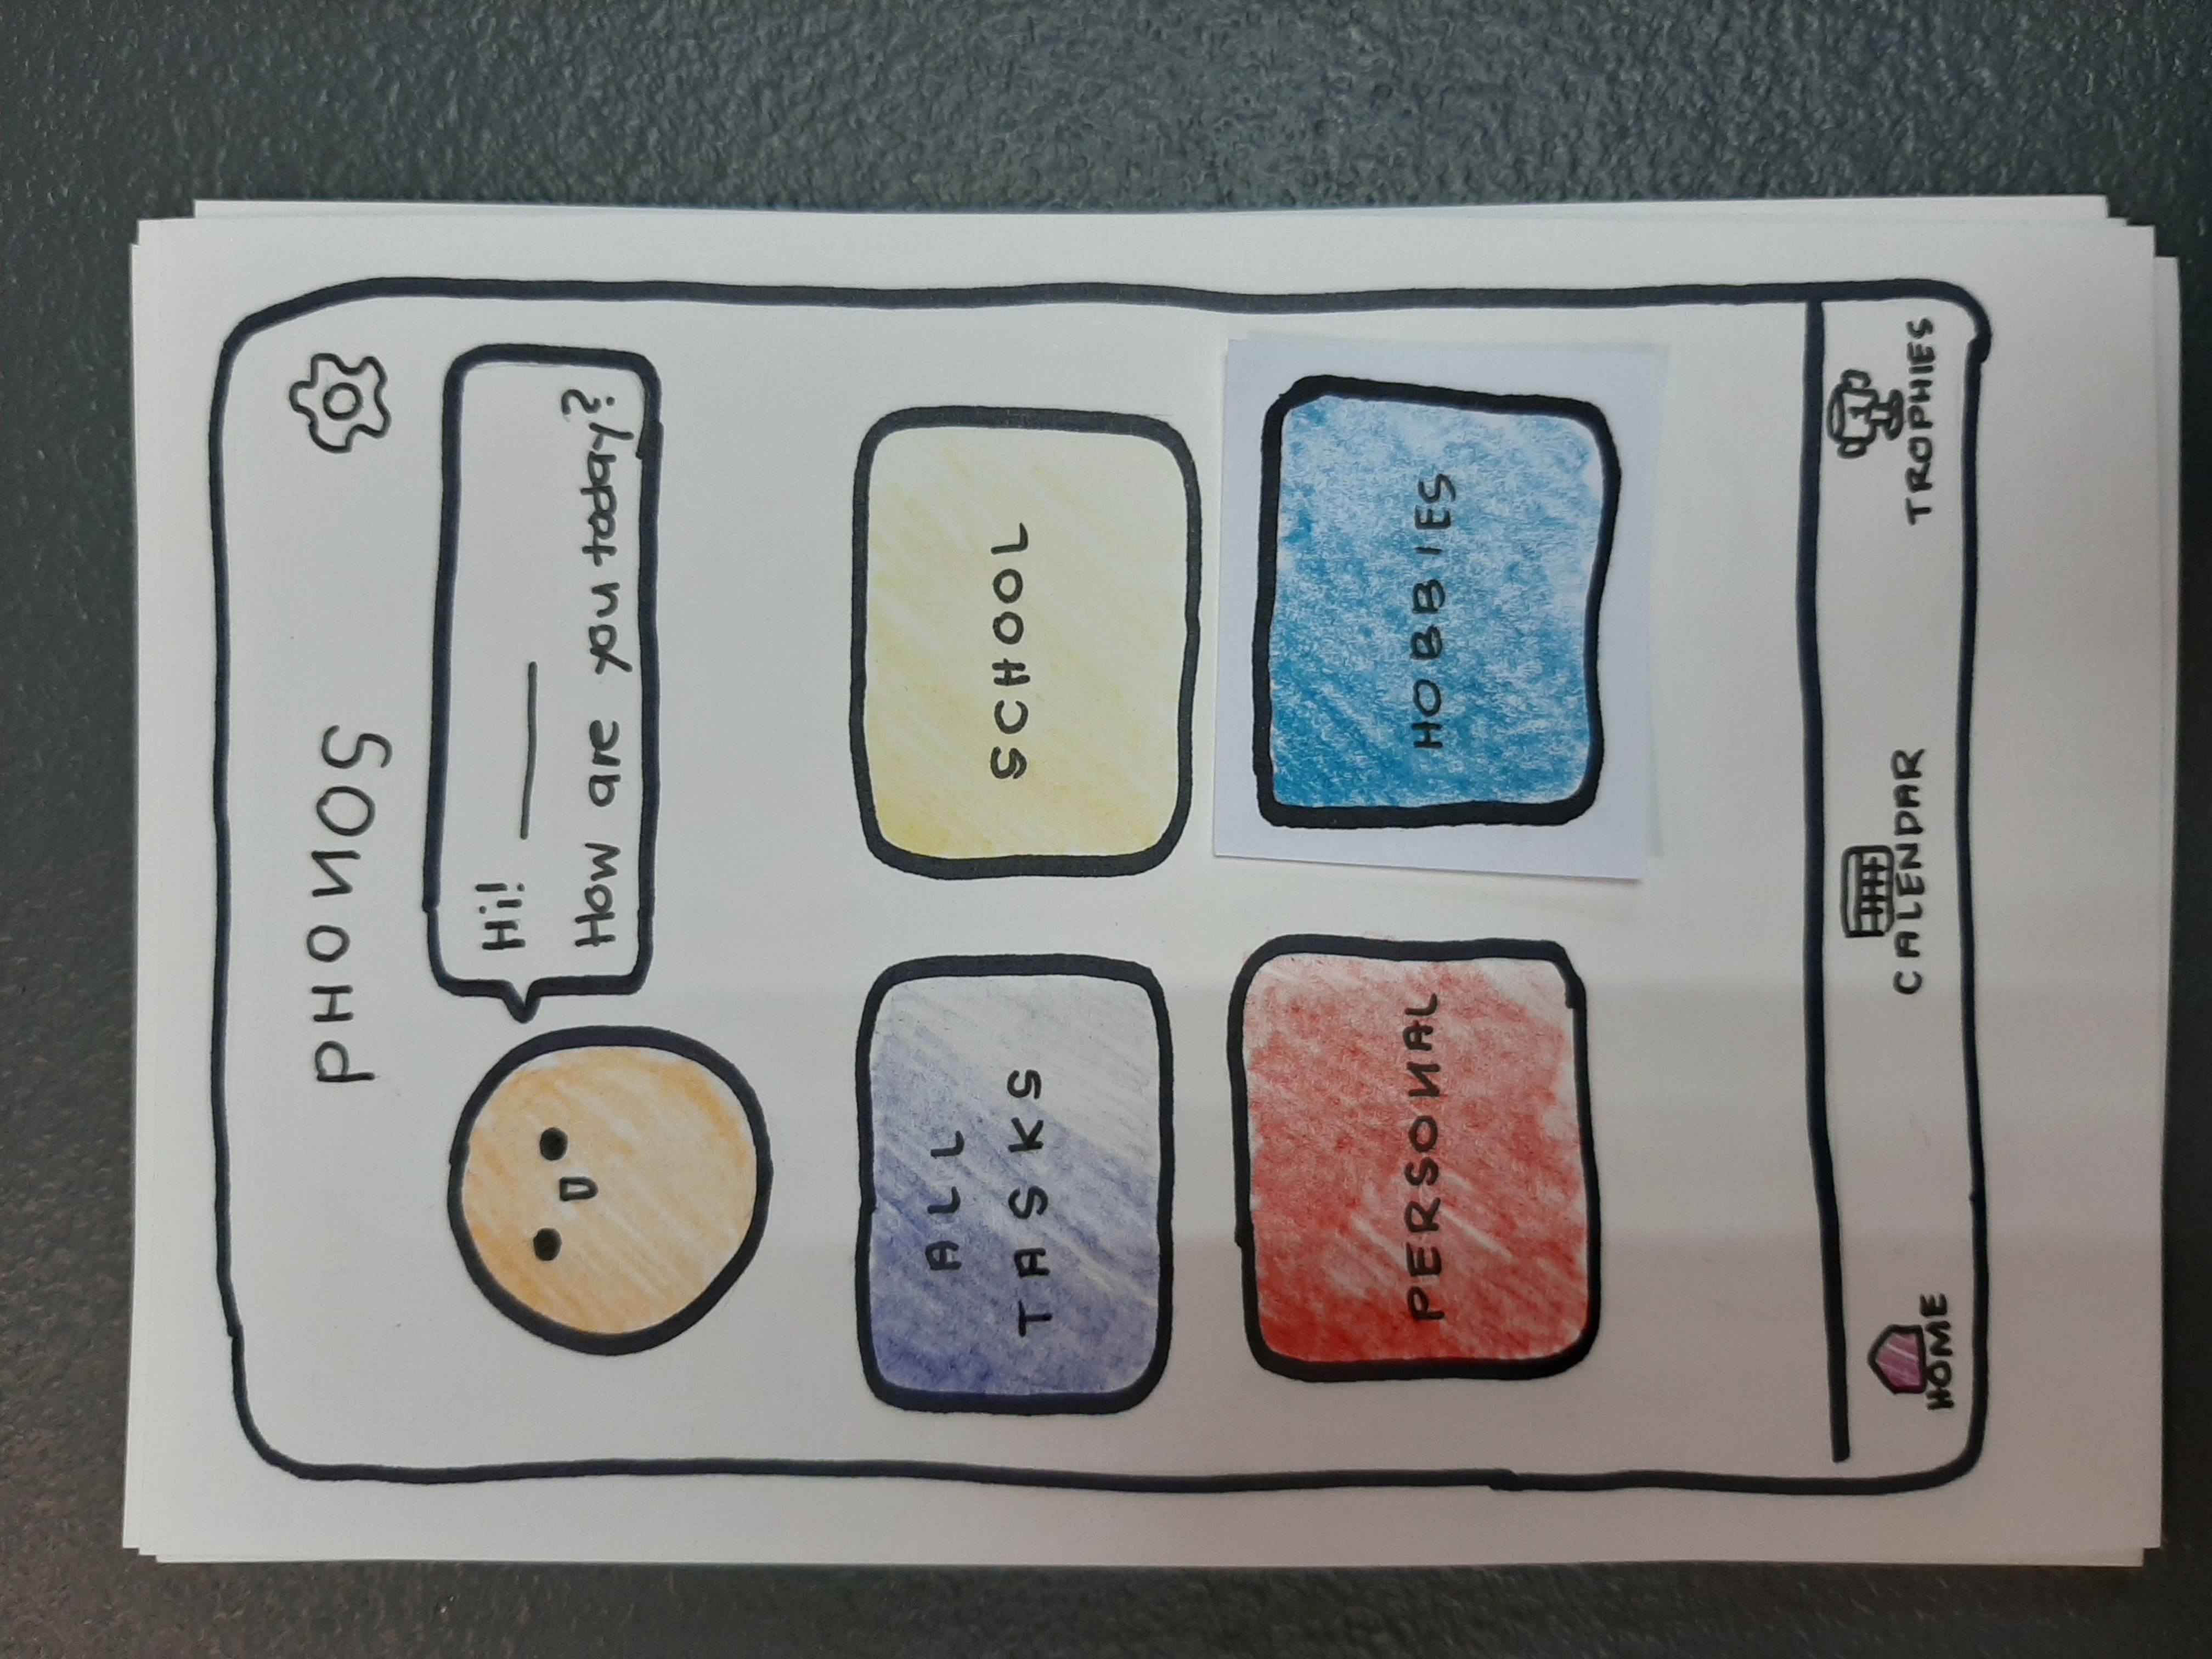 PHONOS
Hi!
How are you today?
ALL
TASKS
SCHOOL
PERSONAL
HOBBIES
HOME
CALENDAR
TROPHIES